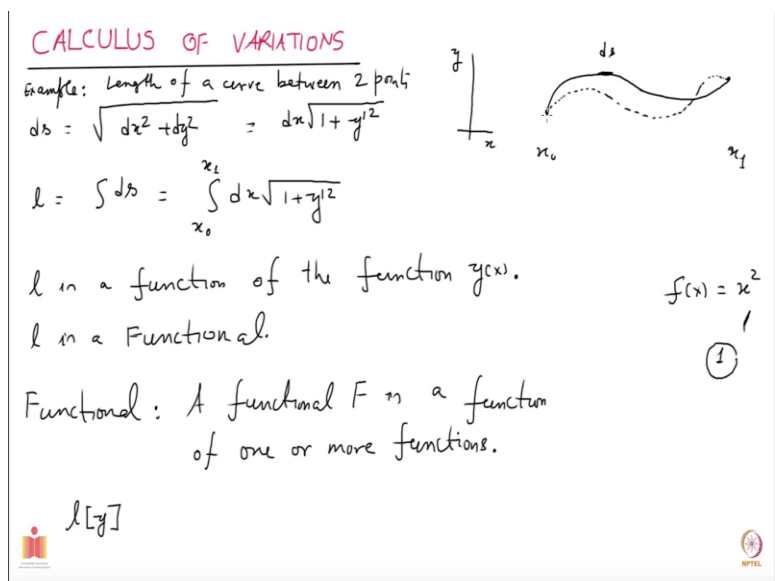 CALCULUS OF VARIATIONS
Example: Length of a curve between 2 points
ds = √(dx² + dy²) = dx√(1 + y'²)
l = ∫ds = ∫_{x₀}^{x₁} dx√(1 + y'²)
l is a function of the function y(x).
l is a Functional.
Functional: A functional F is a function
of one or more functions.
l[y]
y
x
ds
x₀
x₁
f(x) = x²
1
NPTEL